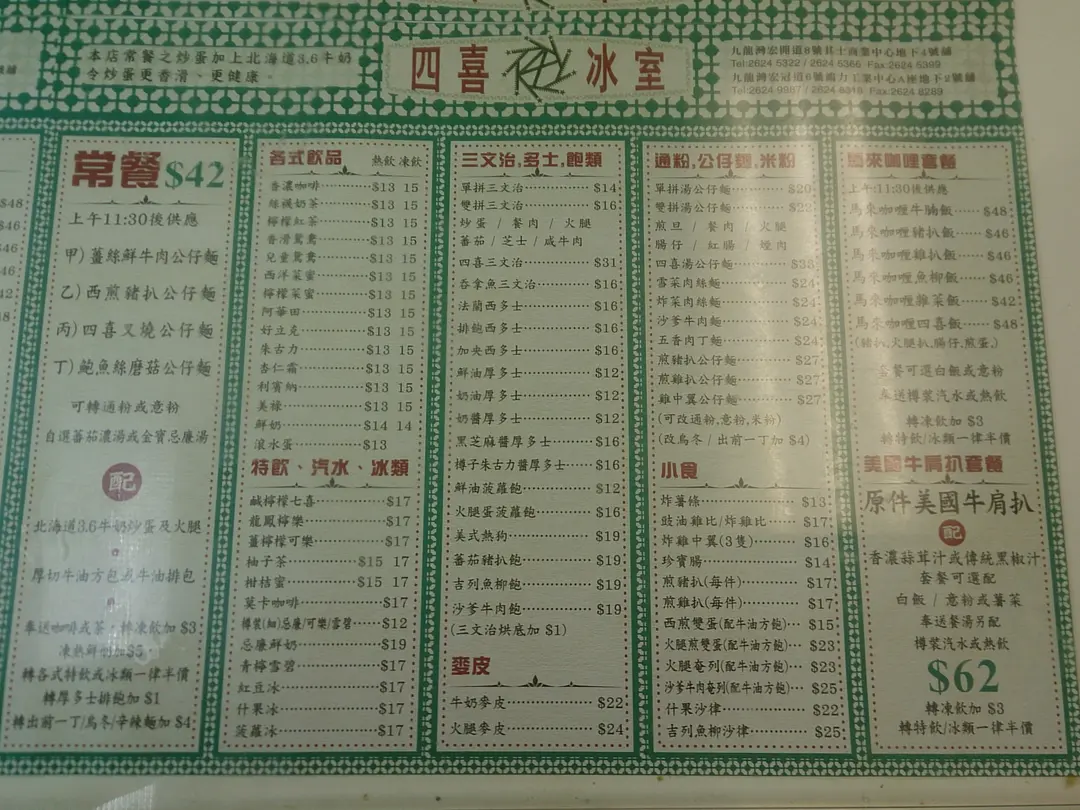 本店常餐之炒蛋加上北海道3.6牛奶
令炒蛋更香滑、更健康。
四喜冰室
九龍灣宏開道8號其士商業中心地下4號舖
Tel:2624 5322 / 2624 5366 Fax:2624 5399
九龍灣宏冠道6號鴻力工業中心A座地下2號舖
Tel:2624 9987 / 2624 8318 Fax:2624 8289
$48
$46
$46
常餐$42
上午11:30後供應
甲)薑絲鮮牛肉公仔麵
乙)西煎豬扒公仔麵
丙)四喜叉燒公仔麵
丁)鮑魚絲磨菇公仔麵
可轉通粉或意粉
自選蕃茄濃湯或金寶忌廉湯
配
北海道3.6牛奶炒蛋及火腿
厚切牛油方包或牛油排包
奉送咖啡或茶,轉凍飲加 $3
凍熱鮮奶加$5
轉各式特飲或冰類一律半價
轉厚多士排飽加 $1
轉出前一丁/烏冬/辛辣麵加 $4
各式飲品 熱飲 凍飲
香濃咖啡 $13 15
絲襪奶茶 $13 15
檸檬紅茶 $13 15
香滑鴛鴦 $13 15
兒童鴛鴦 $13 15
西洋菜蜜 $13 15
檸檬菜蜜 $13 15
阿華田 $13 15
好立克 $13 15
朱古力 $13 15
杏仁霜 $13 15
利賓納 $13 15
美祿 $13 15
鮮奶 $14 14
滾水蛋 $13
特飲、汽水、冰類
鹹檸檬七喜 $17
龍鳳檸樂 $17
薑檸檬可樂 $17
柚子茶 $15 17
柑桔蜜 $15 17
莫卡咖啡 $17
樽裝(細)忌廉/可樂/雪碧 $12
忌廉鮮奶 $19
青檸雪碧 $17
紅豆冰 $17
什果冰 $17
菠蘿冰 $17
三文治,多士,飽類
單拼三文治 $14
雙拼三文治 $16
炒蛋 / 餐肉 / 火腿
蕃茄 / 芝士 / 咸牛肉
四喜三文治 $31
吞拿魚三文治 $16
法蘭西多士 $16
排飽西多士 $16
加央西多士 $16
鮮油厚多士 $12
奶油厚多士 $12
奶醬厚多士 $12
黑芝麻醬厚多士 $16
樽子朱古力醬厚多士 $16
鮮油菠蘿飽 $12
火腿蛋菠蘿飽 $16
美式熱狗 $19
蕃茄豬扒飽 $19
吉列魚柳飽 $19
沙爹牛肉飽 $19
(三文治烘底加 $1)
麥皮
牛奶麥皮 $22
火腿麥皮 $24
通粉,公仔麵,米粉
單拼湯公仔麵 $20
雙拼湯公仔麵 $22
煎旦 / 餐肉 / 火腿
腸仔 / 紅腸 / 煙肉
四喜湯公仔麵 $33
雪菜肉絲麵 $24
炸菜肉絲麵 $24
沙爹牛肉麵 $24
五香肉丁麵 $24
煎豬扒公仔麵 $27
煎雞扒公仔麵 $27
雞中翼公仔麵 $27
(可改通粉,意粉,米粉)
(改烏冬 / 出前一丁加 $4)
小食
炸薯條 $13
豉油雞比/炸雞比 $17
炸雞中翼(3隻) $16
珍寶腸 $14
煎豬扒(每件) $17
煎雞扒(每件) $17
西煎雙蛋(配牛油方飽) $15
火腿煎雙蛋(配牛油方飽) $23
火腿奄列(配牛油方飽) $23
沙爹牛肉奄列(配牛油方飽) $25
什果沙律 $22
吉列魚柳沙律 $25
馬來咖喱套餐
上午11:30後供應
馬來咖喱牛腩飯 $48
馬來咖喱豬扒飯 $46
馬來咖喱雞扒飯 $46
馬來咖喱魚柳飯 $46
馬來咖喱雜菜飯 $42
馬來咖喱四喜飯 $48
(豬扒,火腿扒,腸仔,煎蛋,)
套餐可選白飯或意粉
奉送樽裝汽水或熱飲
轉凍飲加 $3
轉特飲/冰類一律半價
美國牛肩扒套餐
原件美國牛肩扒
配
香濃蒜茸汁或傳統黑椒汁
套餐可選配
白飯 / 意粉或薯菜
奉送餐湯另配
樽裝汽水或熱飲
$62
轉凍飲加 $3
轉特飲/冰類一律半價